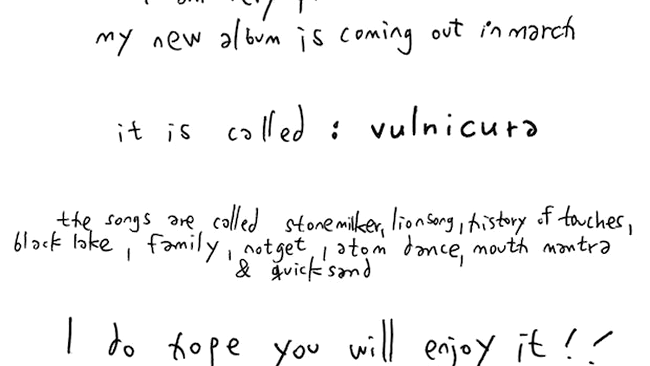 my new album is coming out in march
it is called : vulnicura
the songs are called stonemilker, lionsong, history of touches,
black lake, family, notget, atom dance, mouth mantra
& quicksand
I do hope you will enjoy it!!